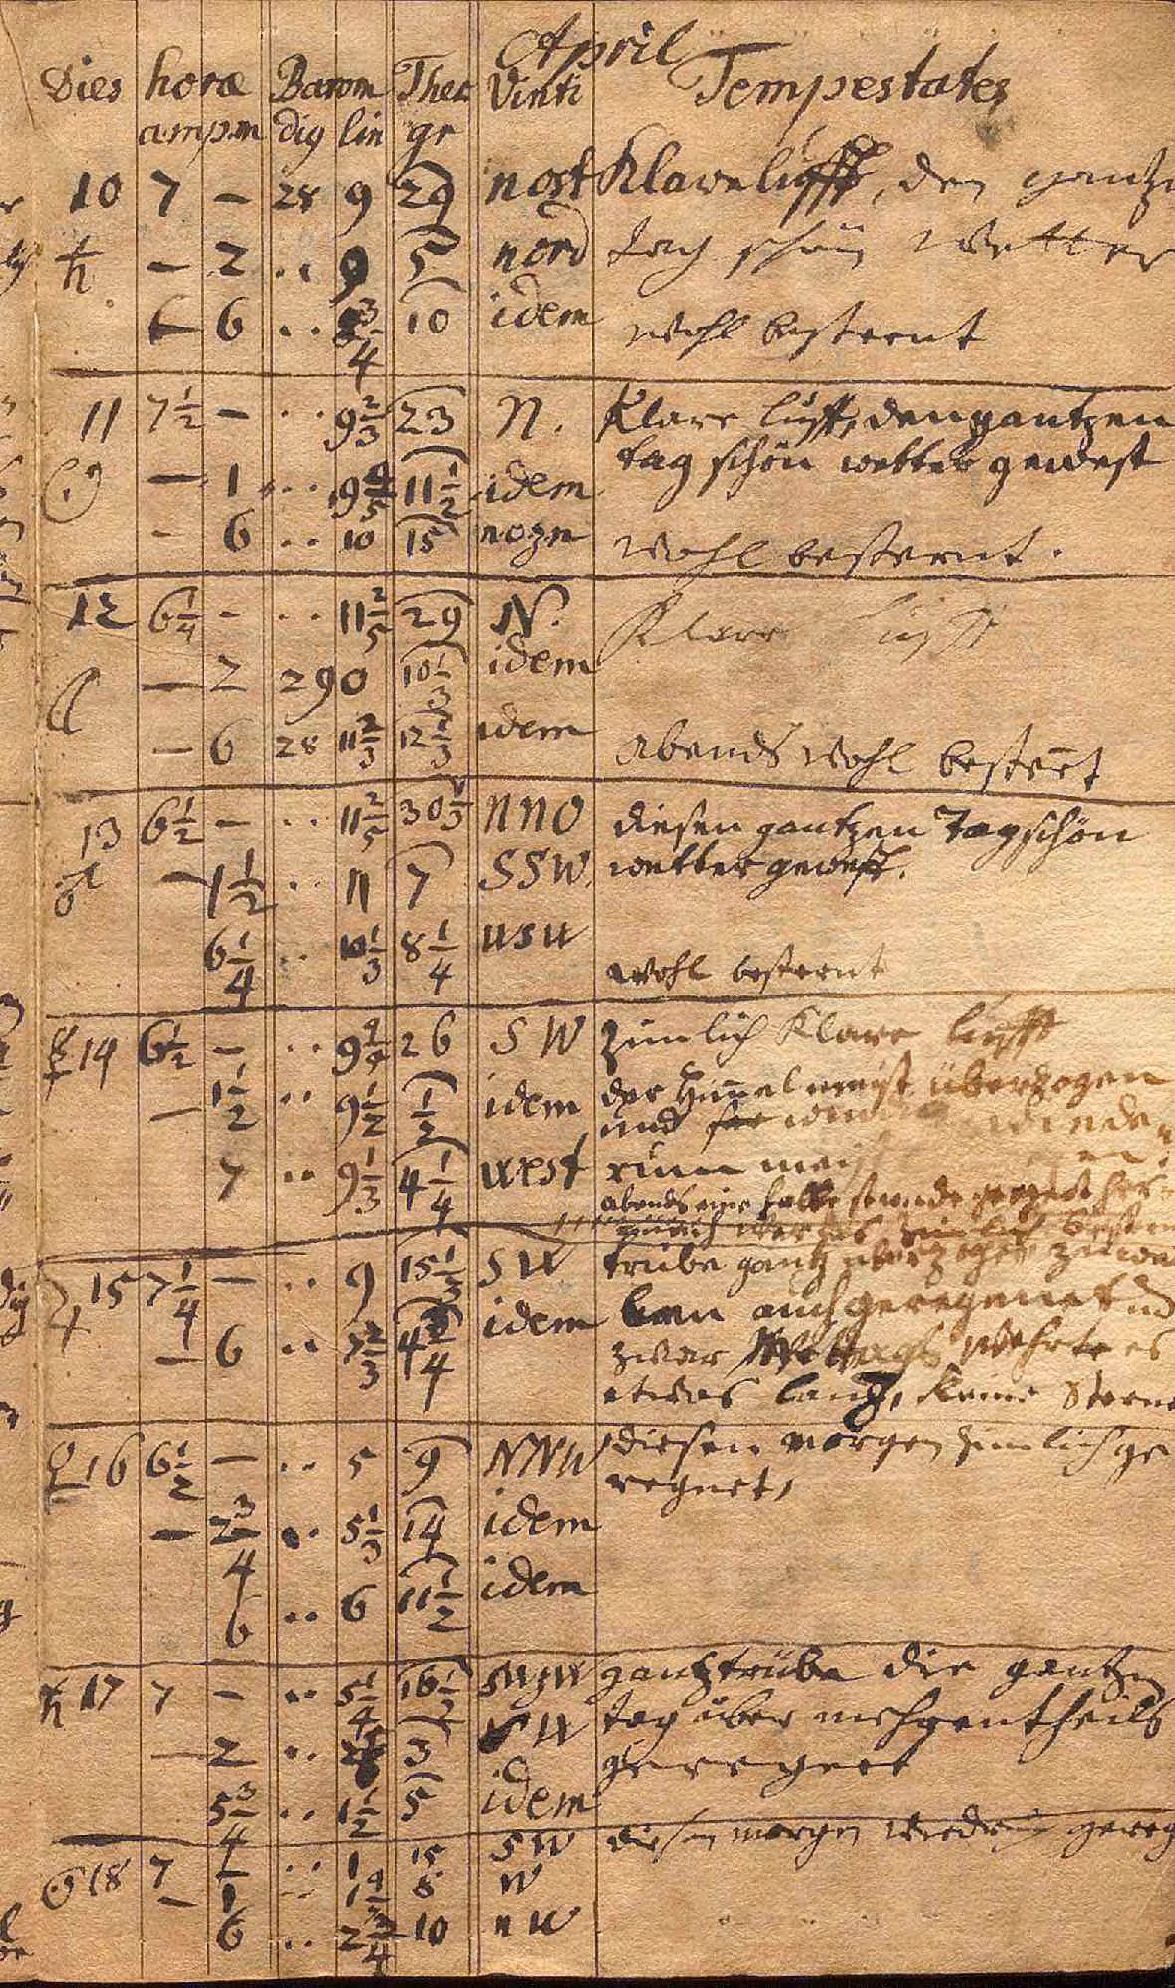 April
Dies horæ Barom Ther Vinti Tempestates
a.m p.m dig lin gr
10 7 – 28 9 29 nost Klare lufft, den gantzen
♄ – 2 .. 9 5 nord tag schön Wetter
– 6 .. 3/4 10 idem wohl besternt
11 7 1/2 – .. 9 2/3 23 N. Klare lufft, den gantzen
tag schön wetter gewest
☉ – 1 .. 9 4/5 11 1/2 idem
- 6 .. 10 15 wohl besternt.
12 6 1/4 – .. 11 2/5 29 N. Klare lufft
☾ — 2 29 0 10 1/3 idem
– 6 28 11 2/3 12 2/3 idem abends wohl besternt
13 6 1/2 – .. 11 2/5 30 1/3 NNO diesen gantzen Tag schön
♂ – 1 1/2 .. 11 7 SSW. wetter gewest.
6 1/4 .. 10 1/3 8 1/4 wsw
wohl besternt
☿ 14 6 1/2 – .. 9 26 SW zimlich Klare lufft
– 1 1/2 .. 9 1/2 1/2 idem der Himel meist überzogen
und wiede-
7 .. 9 1/3 4 1/4 west rum
abends eine halbe stunde geregnet
♃ 15 7 1/4 – .. 9 15 1/3 SW trübe gantz überzogen zuwei
len auch geregnet und
– 6 .. 2/3 4 3/4 idem zwar wehrte es
etwas lang, keine Sterne
♀ 16 6 1/2 – .. 5 9 NNW diesen morgen zimlich ge
regnet,
– 2 3/4 .. 5 1/3 14 idem
6 .. 6 11 1/2 idem
♄ 17 7 – .. 5 1/4 16 1/2 gantz trübe die gantzen
– 2 .. 3 SW tag über mehrentheils
geregnet
5 3/4 .. 1 1/2 5 idem
☉ 18 7 – .. 1 15 SW diesen morgen wiederum gereg
– 1 .. 8 W
6 .. 2 3/4 10 nW